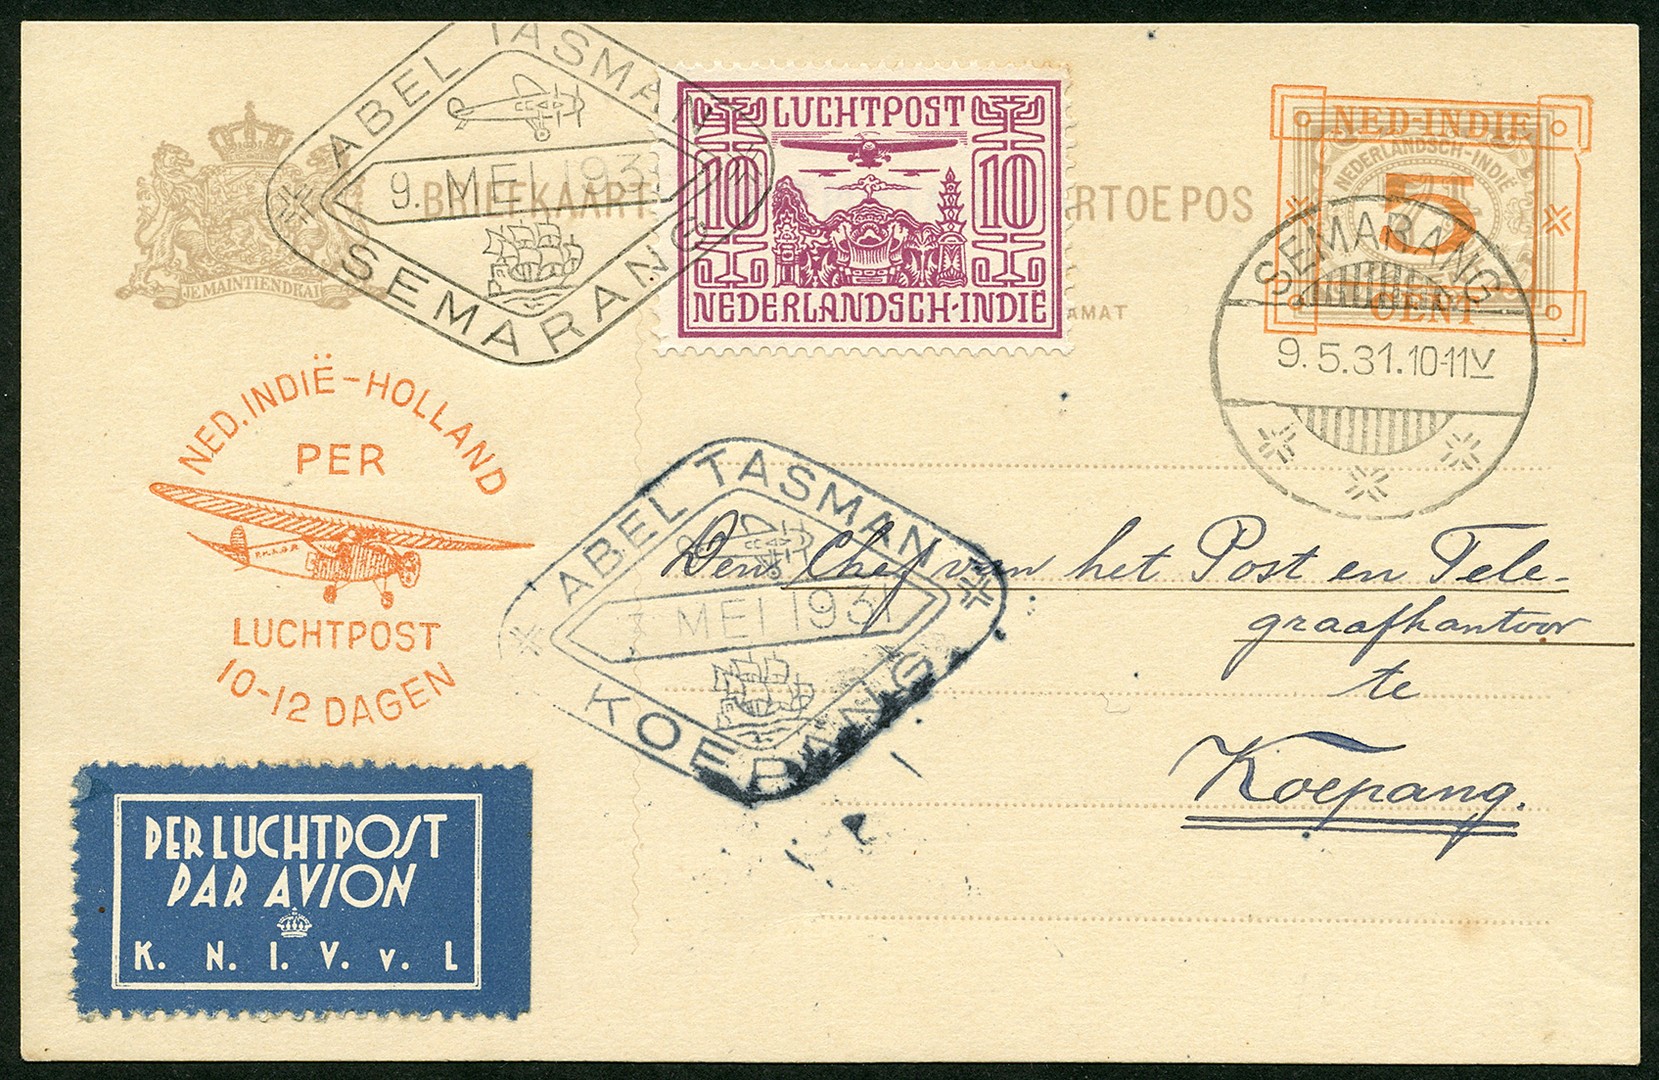 ABEL TASMAN
9. MEI 193
SEMARANG
JE MAINTIENDRAI
BRIEFKAART
RTOE POS
AMAT
LUCHTPOST
10 10
NEDERLANDSCH-INDIË
NED-INDIE
NEDERLANDSCH-INDIË
5
CENT
SEMARANG
9.5.31.10-11V
NED. INDIË-HOLLAND
PER
LUCHTPOST
10-12 DAGEN
ABEL TASMAN
MEI 1931
KOEPANG
Den Chef van het Post en Tele-
graafkantoor
te
Koepang.
PER LUCHTPOST
PAR AVION
K. N. I. V. v. L